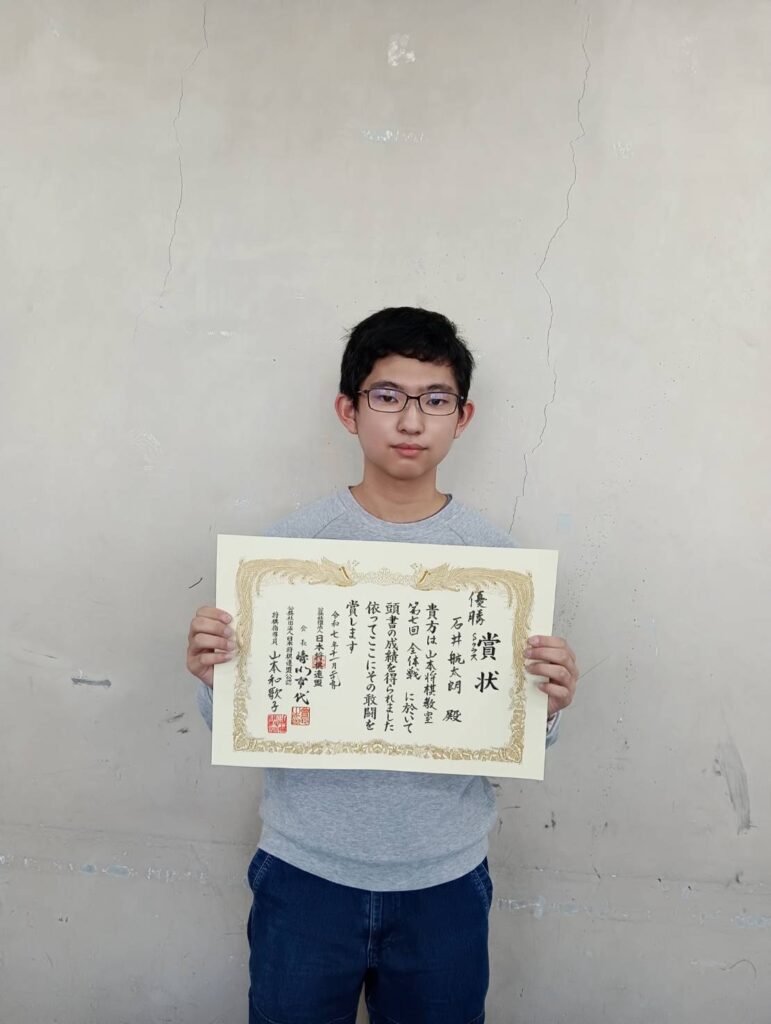 賞状
優勝
Sクラス
石井 航太朗 殿
貴方は山本将棋教室
第七回 全体戦 に於いて
頭書の成績を得られました
依ってここにその敢闘を
賞します
令和七年十一月
公益社団法人日本将棋連盟
会長 清水市代
公益社団法人日本将棋連盟公認
将棋指導員 山本和歌子